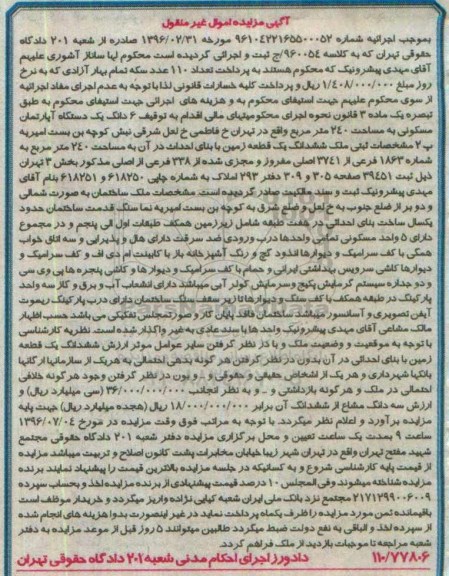 آگهی مزایده اموال غیر منقول
بموجب اجرائیه شماره ۹۶۱۰۴۲۲۱۶۵۵۰۰۰۵۲ مورخه ۱۳۹۶/۰۲/۳۱ صادره از شعبه ۲۰۱ دادگاه
حقوقی تهران که به کلاسه ۹۶۰۰۵۴/ج ثبت و اجرائی گردیده است محکوم لها ساناز آشوری علیهم
آقای مهدی پیشرونیک که محکوم هستند به پرداخت تعداد ۱۱۰ عدد سکه تمام بهار آزادی که به نرخ
روز مبلغ ۱/۴۰۸/۰۰۰/۰۰۰ ریال و پرداخت کلیه خسارات قانونی لذا با توجه به عدم اجرای مفاد اجرائیه
از سوی محکوم علیهم جهت استیفای محکوم به و هزینه های اجرائی جهت استیفای محکوم به طبق
تبصره یک ماده ۳ قانون نحوه اجرای محکومیتهای مالی اقدام به توقیف ۶ دانگ یک دستگاه آپارتمان
مسکونی به مساحت ۲۴۰ متر مربع واقع در تهران خ فاطمی خ لعل شرقی نبش کوچه بن بست امیریه
پ ۲ مشخصات ثبتی ملک ششدانگ یک قطعه زمین با بنای احداث در آن به مساحت ۲۴۰ متر مربع به
شماره ۱۸۶۳ فرعی از ۳۷۴۱ اصلی مفروز و مجزی شده از ۳۳۸ فرعی از اصلی مذکور بخش ۳ تهران
ذیل ثبت ۳۹۴۵۱ صفحه ۳۰۵ و ۳۰۹ دفتر ۲۹۳ املاک به شماره چاپی ۶۱۸۲۵۰ و ۶۱۸۲۵۱ بنام آقای
مهدی پیشرونیک ثبت و سند مالکیت صادر گردیده است. مشخصات ملک ساختمان به صورت شمالی
و دو بر از ضلع جنوب به خ لعل و ضلع شرق به کوچه بن بست امیریه نما سنگ قدمت ساختمان حدود
یکسال ساخت بنای احداثی در هفت طبقه شامل زیرزمین همکف طبقات اول الی پنجم و در مجموع
دارای ۵ واحد مسکونی تمامی واحدها درب ورودی ضد سرقت دارای هال و پذیرایی و سه اتاق خواب
همکی با کف سرامیک و دیوارها اندود گچ و رنگ آشپزخانه باز با کابینت ام دی اف و کف سرامیک و
دیوارها کاشی سرویس بهداشتی ایرانی و حمام با کف سرامیک و دیوار ها و کاشی پنجره ها پی وی سی
و دو جداره سیستم گرمایش پکیج وسرمایش کولر آبی میباشد دارای انشعاب آب و برق و گاز سه واحد
پارکینگ در طبقه همکف با کف سنگ و دیوارها تا زیر سقف سنگ ساختمان دارای درب پارکینگ ریموت
آیفن تصویری و آسانسور میباشد ساختمان فاقد پایان کار و صورتمجلس تفکیکی می باشد حسب اظهار
مالک مشاعی آقای مهدی پیشرونیک واحد ها با سند عادی به غیر واگذار شده است. نظریه کارشناسی
با توجه به موقعیت و وضعیت ملک و با در نظر گرفتن سایر عوامل موثر ارزش ششدانگ یک قطعه
زمین با بنای احداثی در آن بدون در نظر گرفتن هر گونه بدهی احتمالی به هریک از سازمانها ارگانها
بانکها شهرداری و هر یک از اشخاص حقیقی و حقوقی و ... و بدون در نظر گرفتن وجود هر گونه خلافی
احتمالی در ملک و هر گونه بازداشتی و ... و به نظر اینجانب ۳۶/۰۰۰/۰۰۰/۰۰۰ (سی میلیارد ریال) و
ارزش سه دانگ مشاع از ششدانگ آن برابر ۱۸/۰۰۰/۰۰۰/۰۰۰ ریال (هجده میلیارد ریال) جهت پایه
مزایده برآورد و اعلام نظر میگردد. با توجه به مراتب فوق وقت مزایده در مورخ ۱۳۹۶/۰۷/۰۴
ساعت ۹ بمدت یک ساعت تعیین و محل برگزاری مزایده دفتر شعبه ۲۰۱ دادگاه حقوقی مجتمع
شهید مفتح تهران واقع در تهران شهر زیبا خیابان مخابرات پشت کانون اصلاح و تربیت میباشد مزایده
از قیمت پایه کارشناسی شروع و به کسانیکه در جلسه مزایده بالاترین قیمت را پیشنهاد نمایند برنده
مزایده شناخته میشوند وفی المجلس ۱۰ درصد قیمت پیشنهادی از برنده مزایده اخذ و بحساب سپرده
۲۱۷۱۲۹۹۰۰۶۰۰۹ مجتمع نزد بانک ملی ایران شعبه کیایی نژاده واریز میگردد و خریدار موظف است
باقیمانده ثمن مورد مزایده را ظرف یکماه پرداخت نماید در غیر اینصورت بدوا هزینه های انجام شده
از سپرده اخذ و الباقی به نفع دولت ضبط میگردد طالبین میتوانند ۵ روز قبل از موعد مزایده به دفتر
شعبه مراجعه تا موجبات بازدید از ملک فراهم گردد.
۱۱۰/۷۷۸۰۶ دادورز اجرای احکام مدنی شعبه ۲۰۱ دادگاه حقوقی تهران